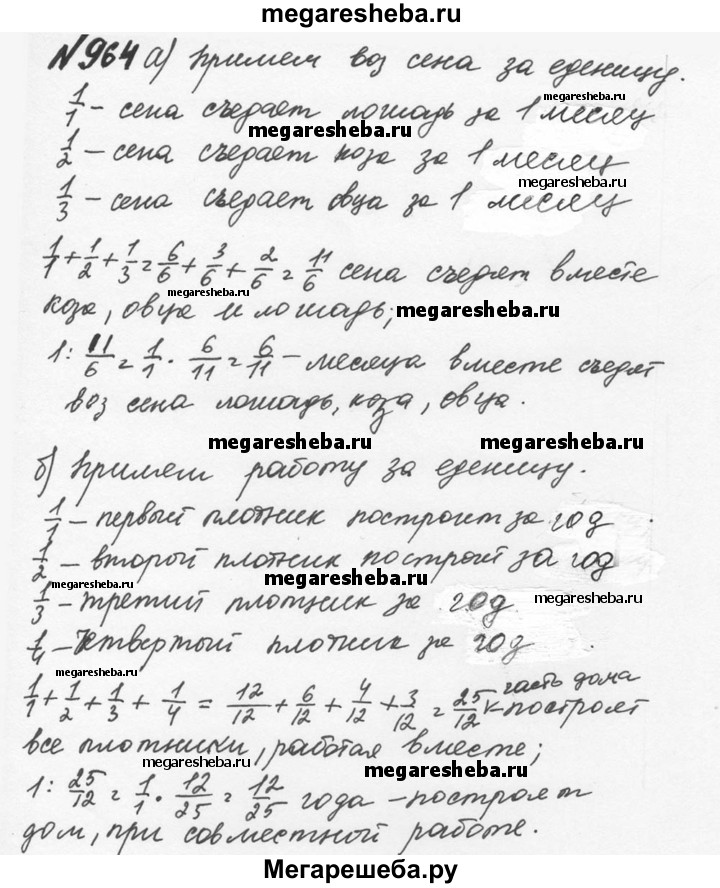 megaresheba.ru
№964 а) Примем воз сена за еденицу.
megaresheba.ru
1/1 - сена съедает лошадь за 1 месяц
megaresheba.ru
1/2 - сена съедает коза за 1 месяц
megaresheba.ru
1/3 - сена съедает овца за 1 месяц
1/1 + 1/2 + 1/3 = 6/6 + 3/6 + 2/6 = 11/6 сена съедят вместе
megaresheba.ru
коза, овца и лошадь; megaresheba.ru
1 : 11/6 = 1/1 · 6/11 = 6/11 - месяца вместе съедят
воз сена лошадь, коза, овца.
megaresheba.ru
б) Примем работу за еденицу.
1/1 - первый плотник построит за год
1/2 - второй плотник построит за год
megaresheba.ru megaresheba.ru
1/3 - третий плотник за год megaresheba.ru
1/4 - четвертый плотник за год
megaresheba.ru
1/1 + 1/2 + 1/3 + 1/4 = 12/12 + 6/12 + 4/12 + 3/12 = 25/12 часть дома - построят
все плотники, работая вместе;
megaresheba.ru megaresheba.ru
1 : 25/12 = 1/1 · 12/25 = 12/25 года - построят
дом, при совместной работе.
Мегарешеба.ру